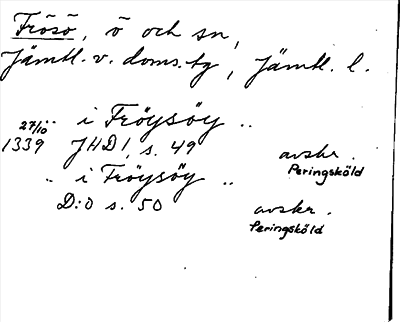 Frösö, ö och sn,
Jämtl. v. doms.tg, Jämtl. l.
27/10 .. i Fröysöy ..
1339 JHD 1, s. 49 avskr.
Peringsköld
.. i Fröysöy ..
D:o s. 50 avskr.
Peringsköld